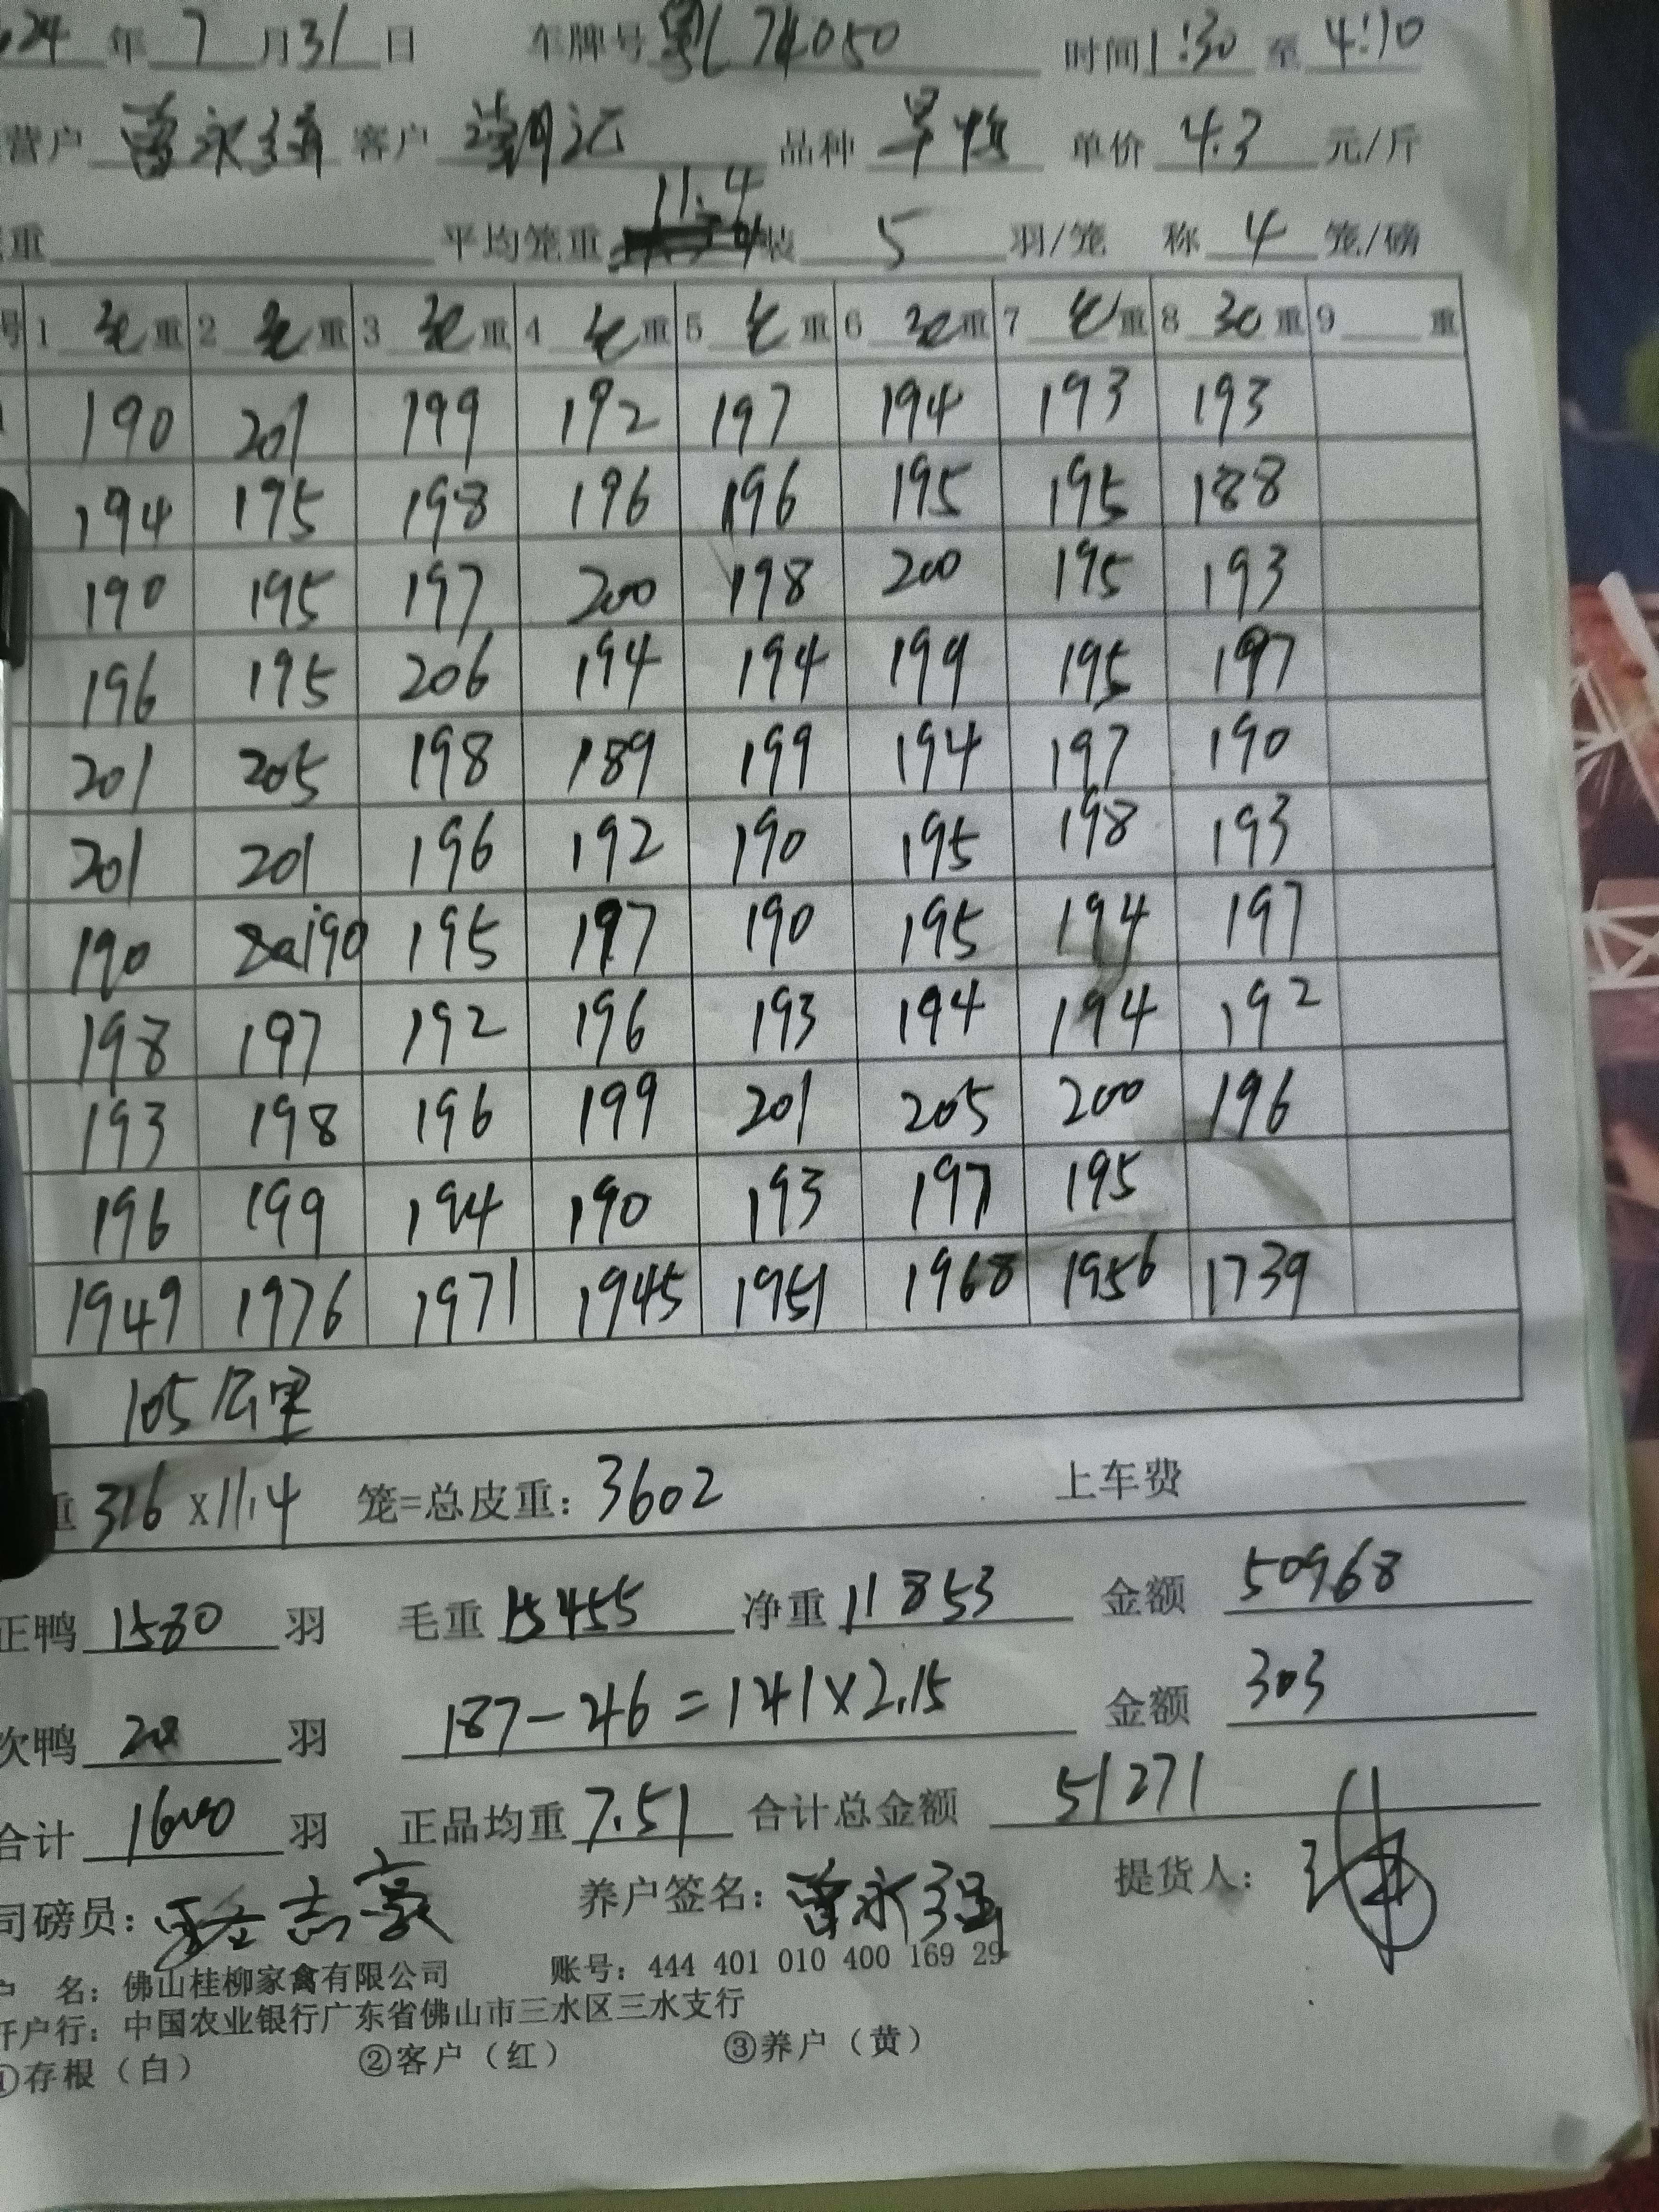 24年7月31日 车牌号粤L74050 时间1:30至4:10
营户曾永强 客户 记 品种 早 单价4.3元/斤
重 平均笼重11.4装5羽/笼 称4笼/磅
号 1 毛重 2 毛重 3 毛重 4 毛重 5 毛重 6 毛重 7 毛重 8 毛重 9 重
190 201 199 192 197 194 193 193
194 195 198 196 196 195 195 188
190 195 197 200 198 200 195 193
196 195 206 194 194 199 195 197
201 205 198 189 199 194 197 190
201 201 196 192 190 195 198 193
190 190 195 197 190 195 194 197
198 197 192 196 193 194 194 192
193 198 196 199 201 205 200 196
196 199 194 190 193 197 195
1949 1976 1971 1945 1951 1968 1956 1739
105公里
重316x11.4 笼=总皮重:3602 上车费
正鸭1580羽 毛重15455 净重11853 金额50968
次鸭20羽 187-46=141x2.15 金额303
合计1600羽 正品均重7.51 合计总金额51271
司磅员: 志豪 养户签名:曾永强 提货人:
户 名:佛山桂柳家禽有限公司 账号:444 401 010 400 169 29
开户行:中国农业银行广东省佛山市三水区三水支行
①存根(白) ②客户(红) ③养户(黄)